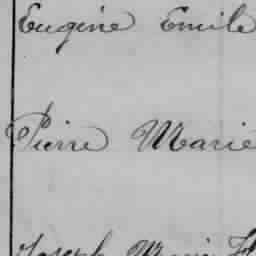 Eugène Emile
Pierre Marie
Joseph Marie